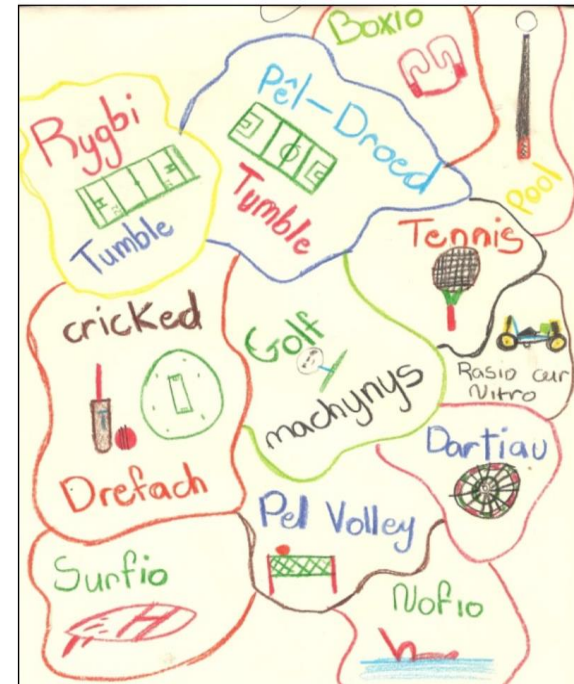 Boxio
Pool
Pêl-Droed
Tumble
Rygbi
Tumble
Tennis
Rasio car
Nitro
cricked
Drefach
Golf
machynys
Dartiau
Pel Volley
Surfio
Nofio